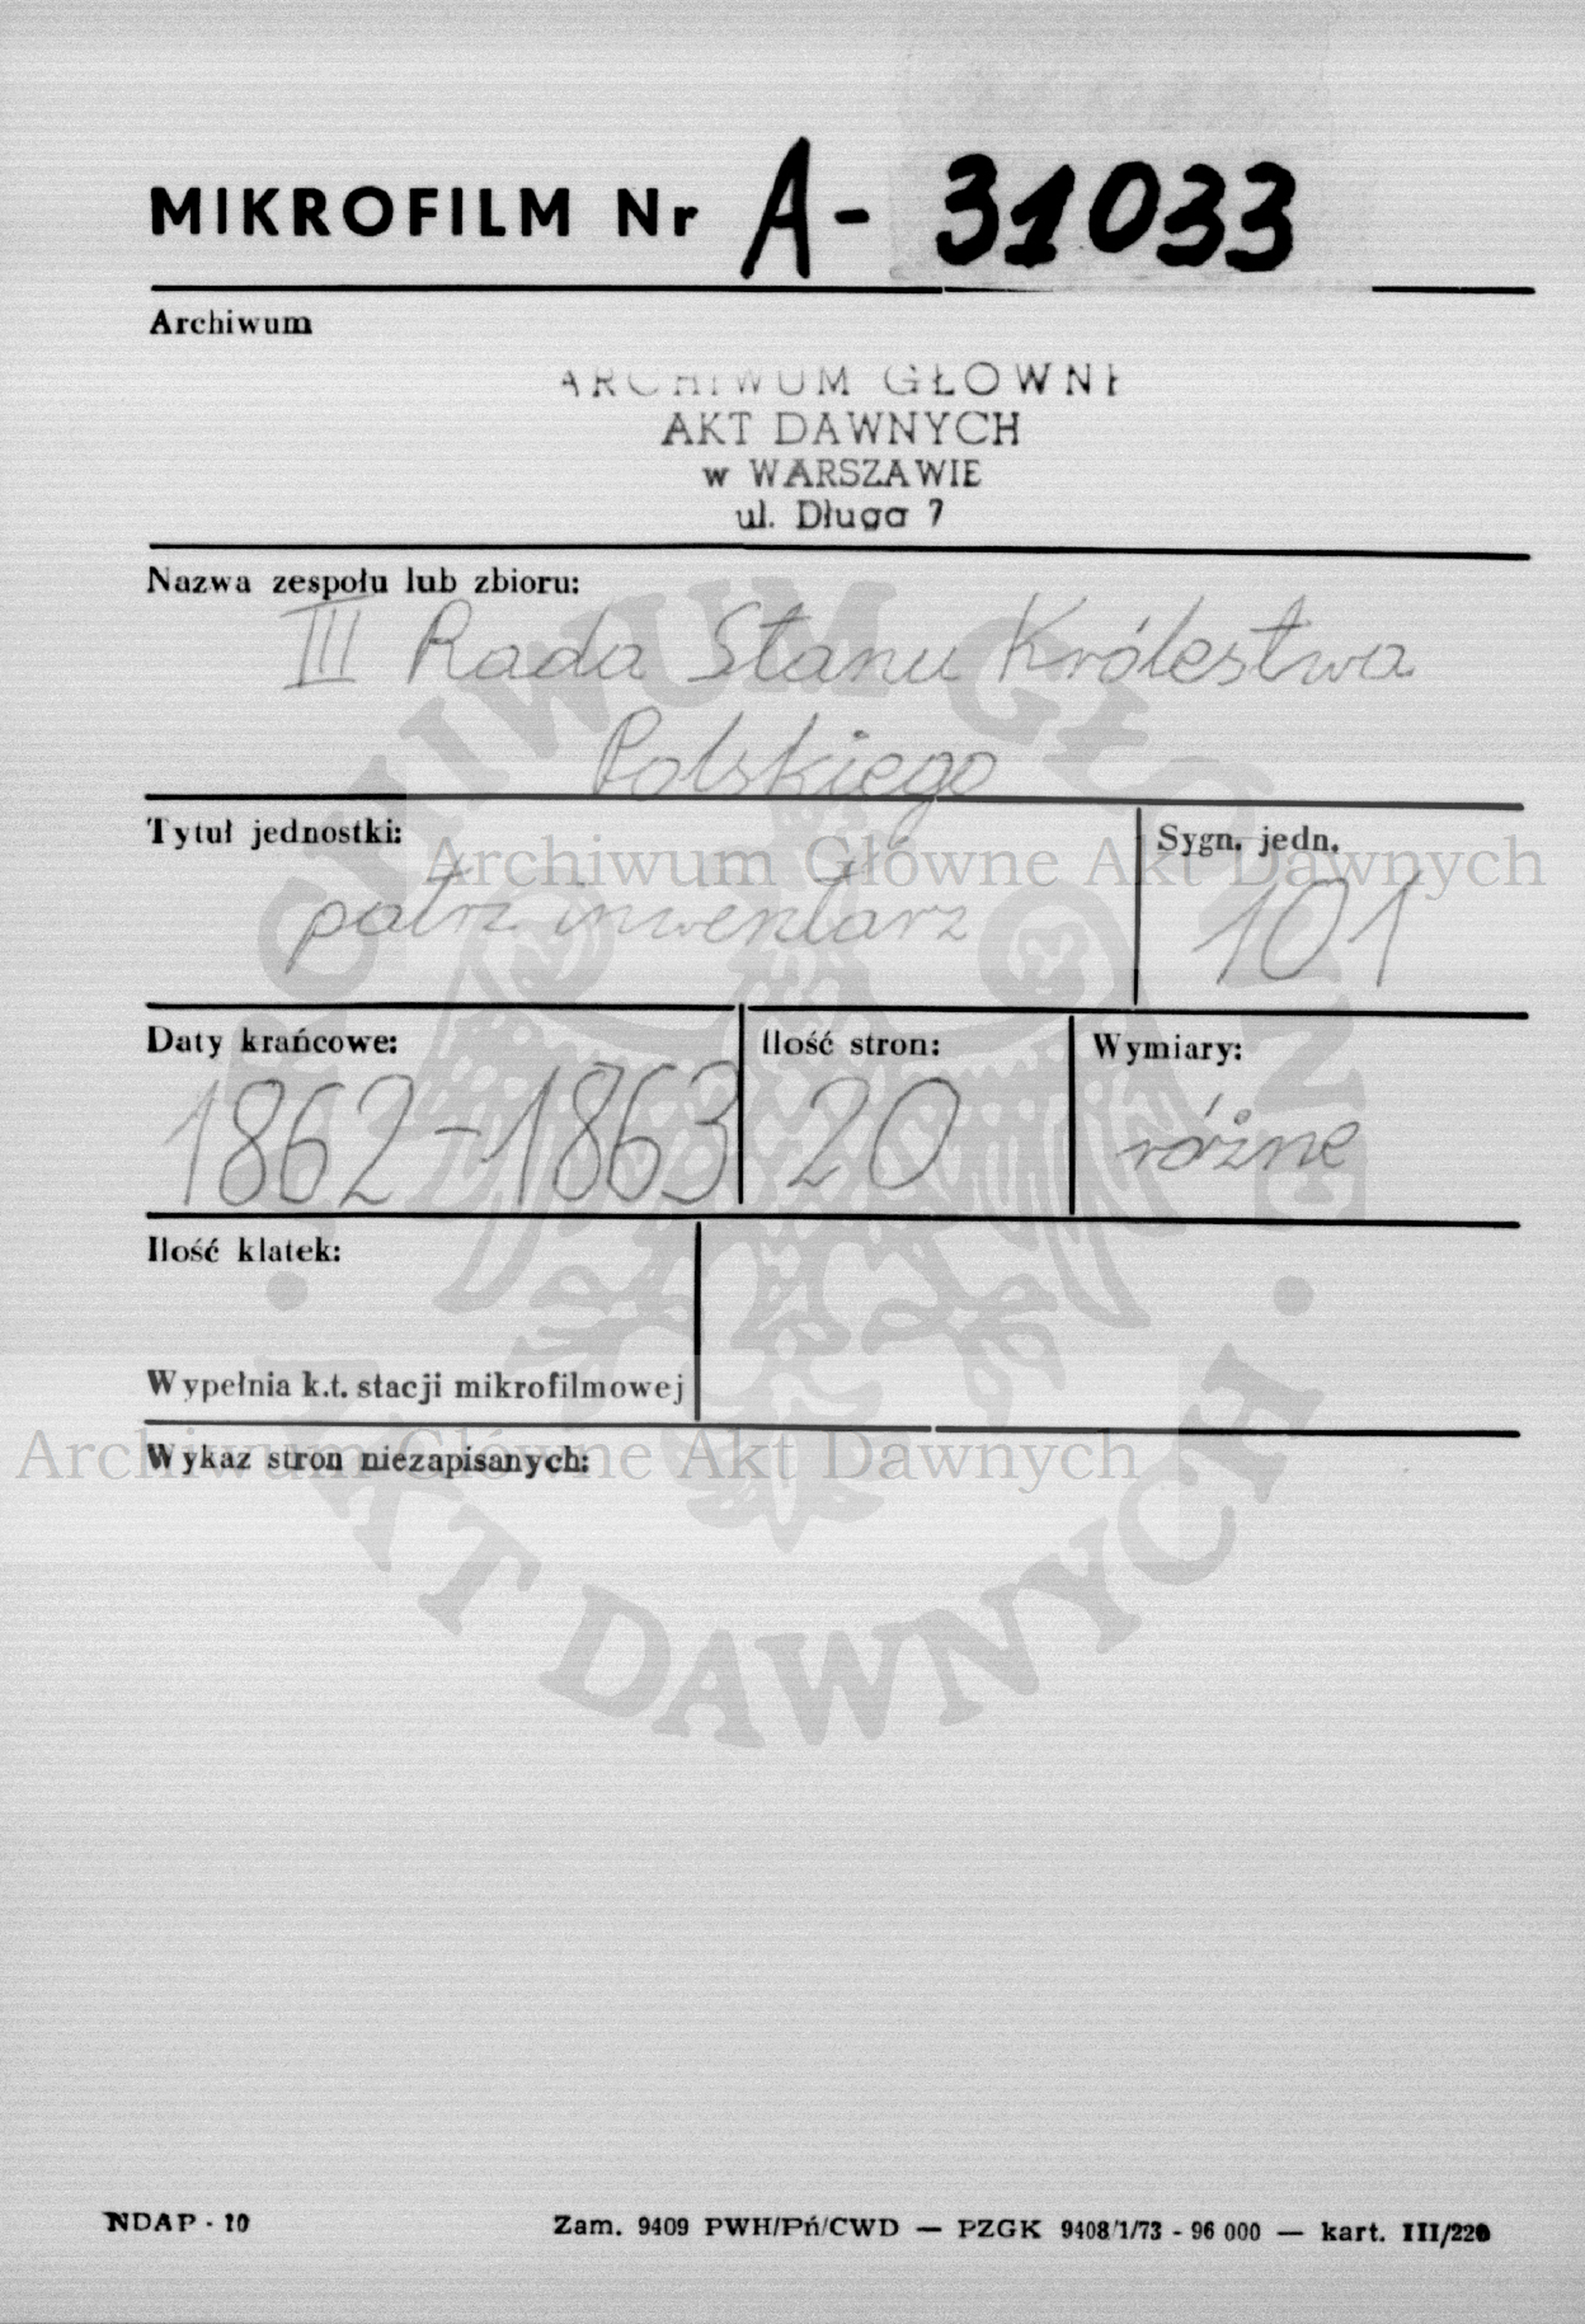 MIKROFILM Nr A - 31033
Archiwum
ARCHIWUM GŁÓWNE
AKT DAWNYCH
w WARSZAWIE
ul. Długa 7
Nazwa zespołu lub zbioru:
III Rada Stanu Królestwa
Polskiego
Tytuł jednostki:
patrz inwentarz
Sygn. jedn.
101
Archiwum Główne Akt Dawnych
Daty krańcowe:
1862-1863
Ilość stron:
20
Wymiary:
różne
Ilość klatek:
Wypełnia k.t. stacji mikrofilmowej
Wykaz stron niezapisanych:
Archiwum Główne Akt Dawnych
ARCHIWUM GŁÓWNE
AKT DAWNYCH
NDAP - 10
Zam. 9409 PWH/Pń/CWD — PZGK 9408/1/73 - 96 000 — kart. III/220